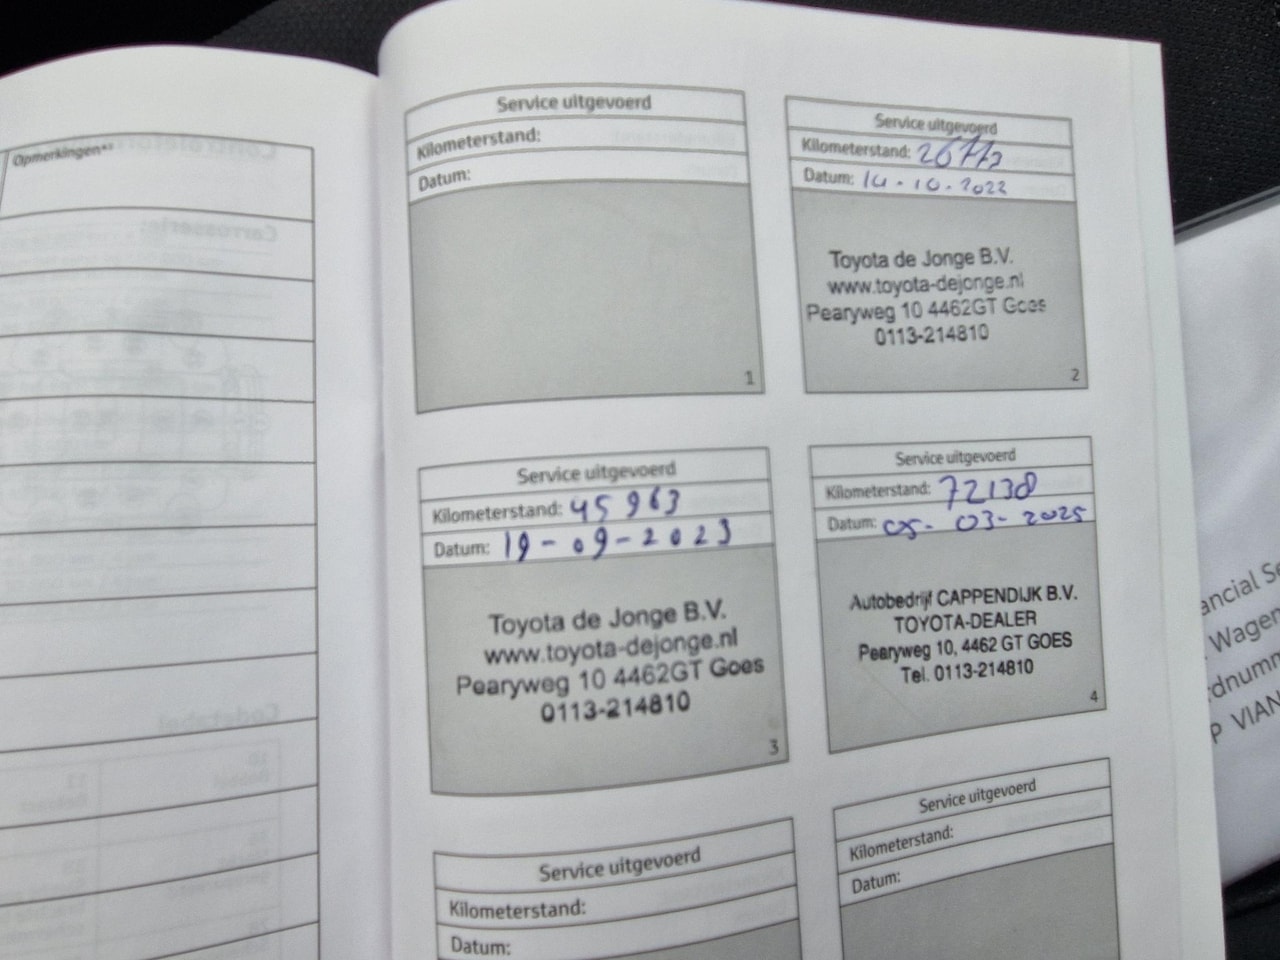 Opmerkingen*¹
Service uitgevoerd
Kilometerstand:
Datum:
1
Service uitgevoerd
Kilometerstand:
Datum: 14-10-2022
Toyota de Jonge B.V.
www.toyota-dejonge.nl
Pearyweg 10 4462GT Goes
0113-214810
2
Service uitgevoerd
Kilometerstand: 45963
Datum: 19-09-2023
Toyota de Jonge B.V.
www.toyota-dejonge.nl
Pearyweg 10 4462GT Goes
0113-214810
3
Service uitgevoerd
Kilometerstand: 72138
Datum: 05-03-2025
Autobedrijf CAPPENDIJK B.V.
TOYOTA-DEALER
Pearyweg 10, 4462 GT GOES
Tel. 0113-214810
4
Service uitgevoerd
Kilometerstand:
Datum:
Service uitgevoerd
Kilometerstand:
Datum:
ancial Se
Wagen
dnumm
P VIAN